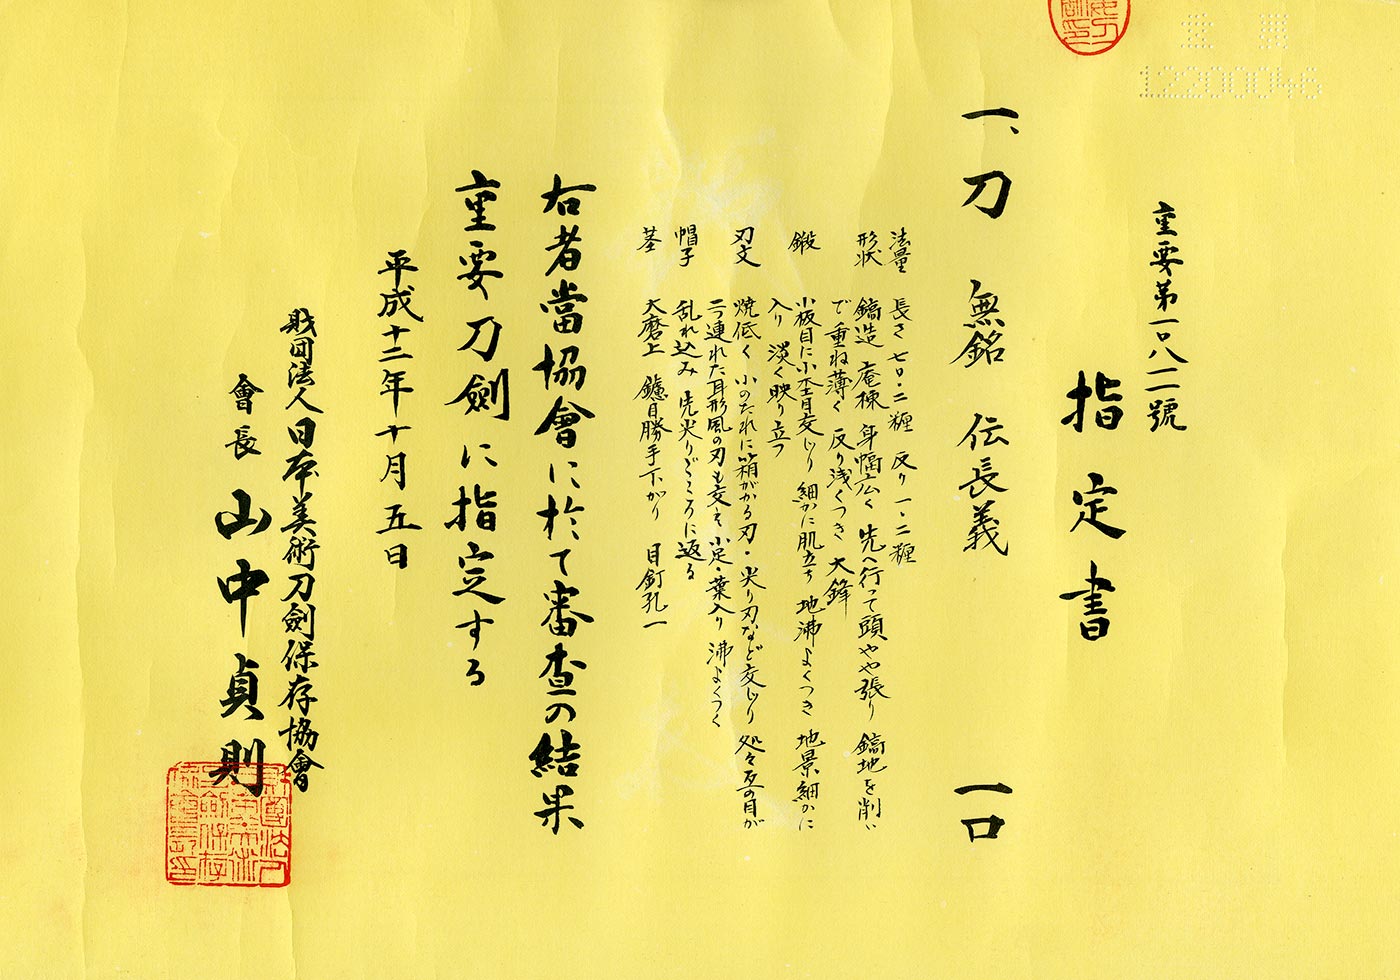 重要
12200046
重要第一〇八二號
指定書
一、刀 無銘 伝長義 一口
法量 長さ 七〇・二糎 反り 一・二糎
形状 鎬造 庵棟 身幅広く 先へ行って頭やや張り 鎬地を削い
で重ね薄く 反り浅くつき 大鋒
鍛 小板目に小杢目交じり 細かに肌立ち 地沸よくつき 地景細かに
入り 淡く映り立つ
刃文 焼低く 小のたれに箱がかる刃・尖り刃など交じり 処々互の目が
二つ連れた耳形風の刃も交え 小足・葉入り 沸よくつく
帽子 乱れ込み 先尖りごころに返る
茎 大磨上 鑢目勝手下がり 目釘孔一
右者當協會に於て審査の結果
重要刀劍に指定する
平成十二年十月五日
財団法人日本美術刀劍保存協會
會長 山中貞則